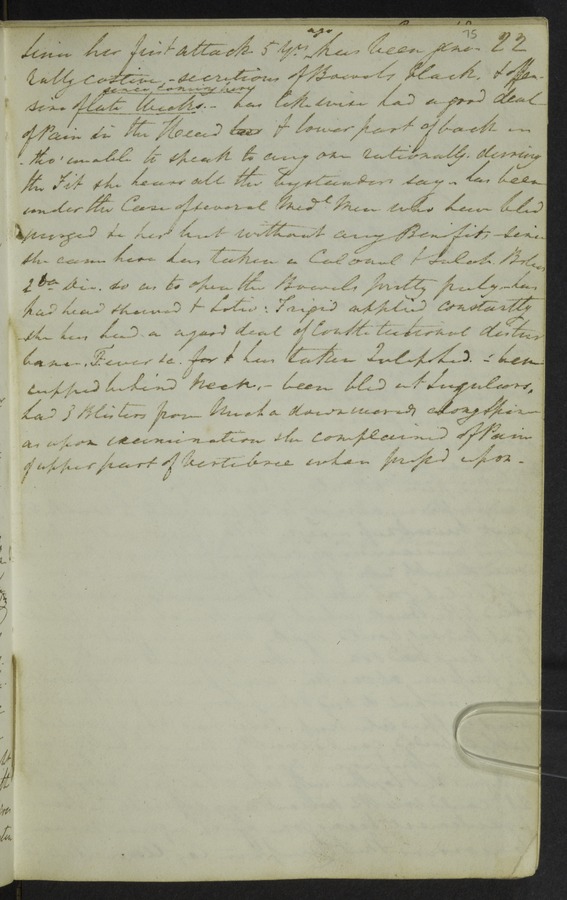 75
22
since her first attack 5 yrs ago has been gene-
rally costive - secretions of Bowels black, & offen-
since coming here
sive of late Weeks - has likewise had a good deal
of Pain in the Head & lower part of back
tho' unable to speak to any one rationally during
the Fit she hears all the bystanders say - has been
under the Care of several Medl Men who have bled
purged &c her but without any Benefit - since
she came here has taken a Calomel &
Die. so as to open the Bowels pretty freely - has
had head shaved & Lotio: Frigid applied constantly
she has had a good deal of Constitutional distur
bance. Fever &c. for & has taken - been
cupped behind Neck, - been bled at Jugulars,
had 3 Blisters from Nucha downwards along Spine
as upon examination she complained of Pain
of upper part of Vertebrae when press'd upon -